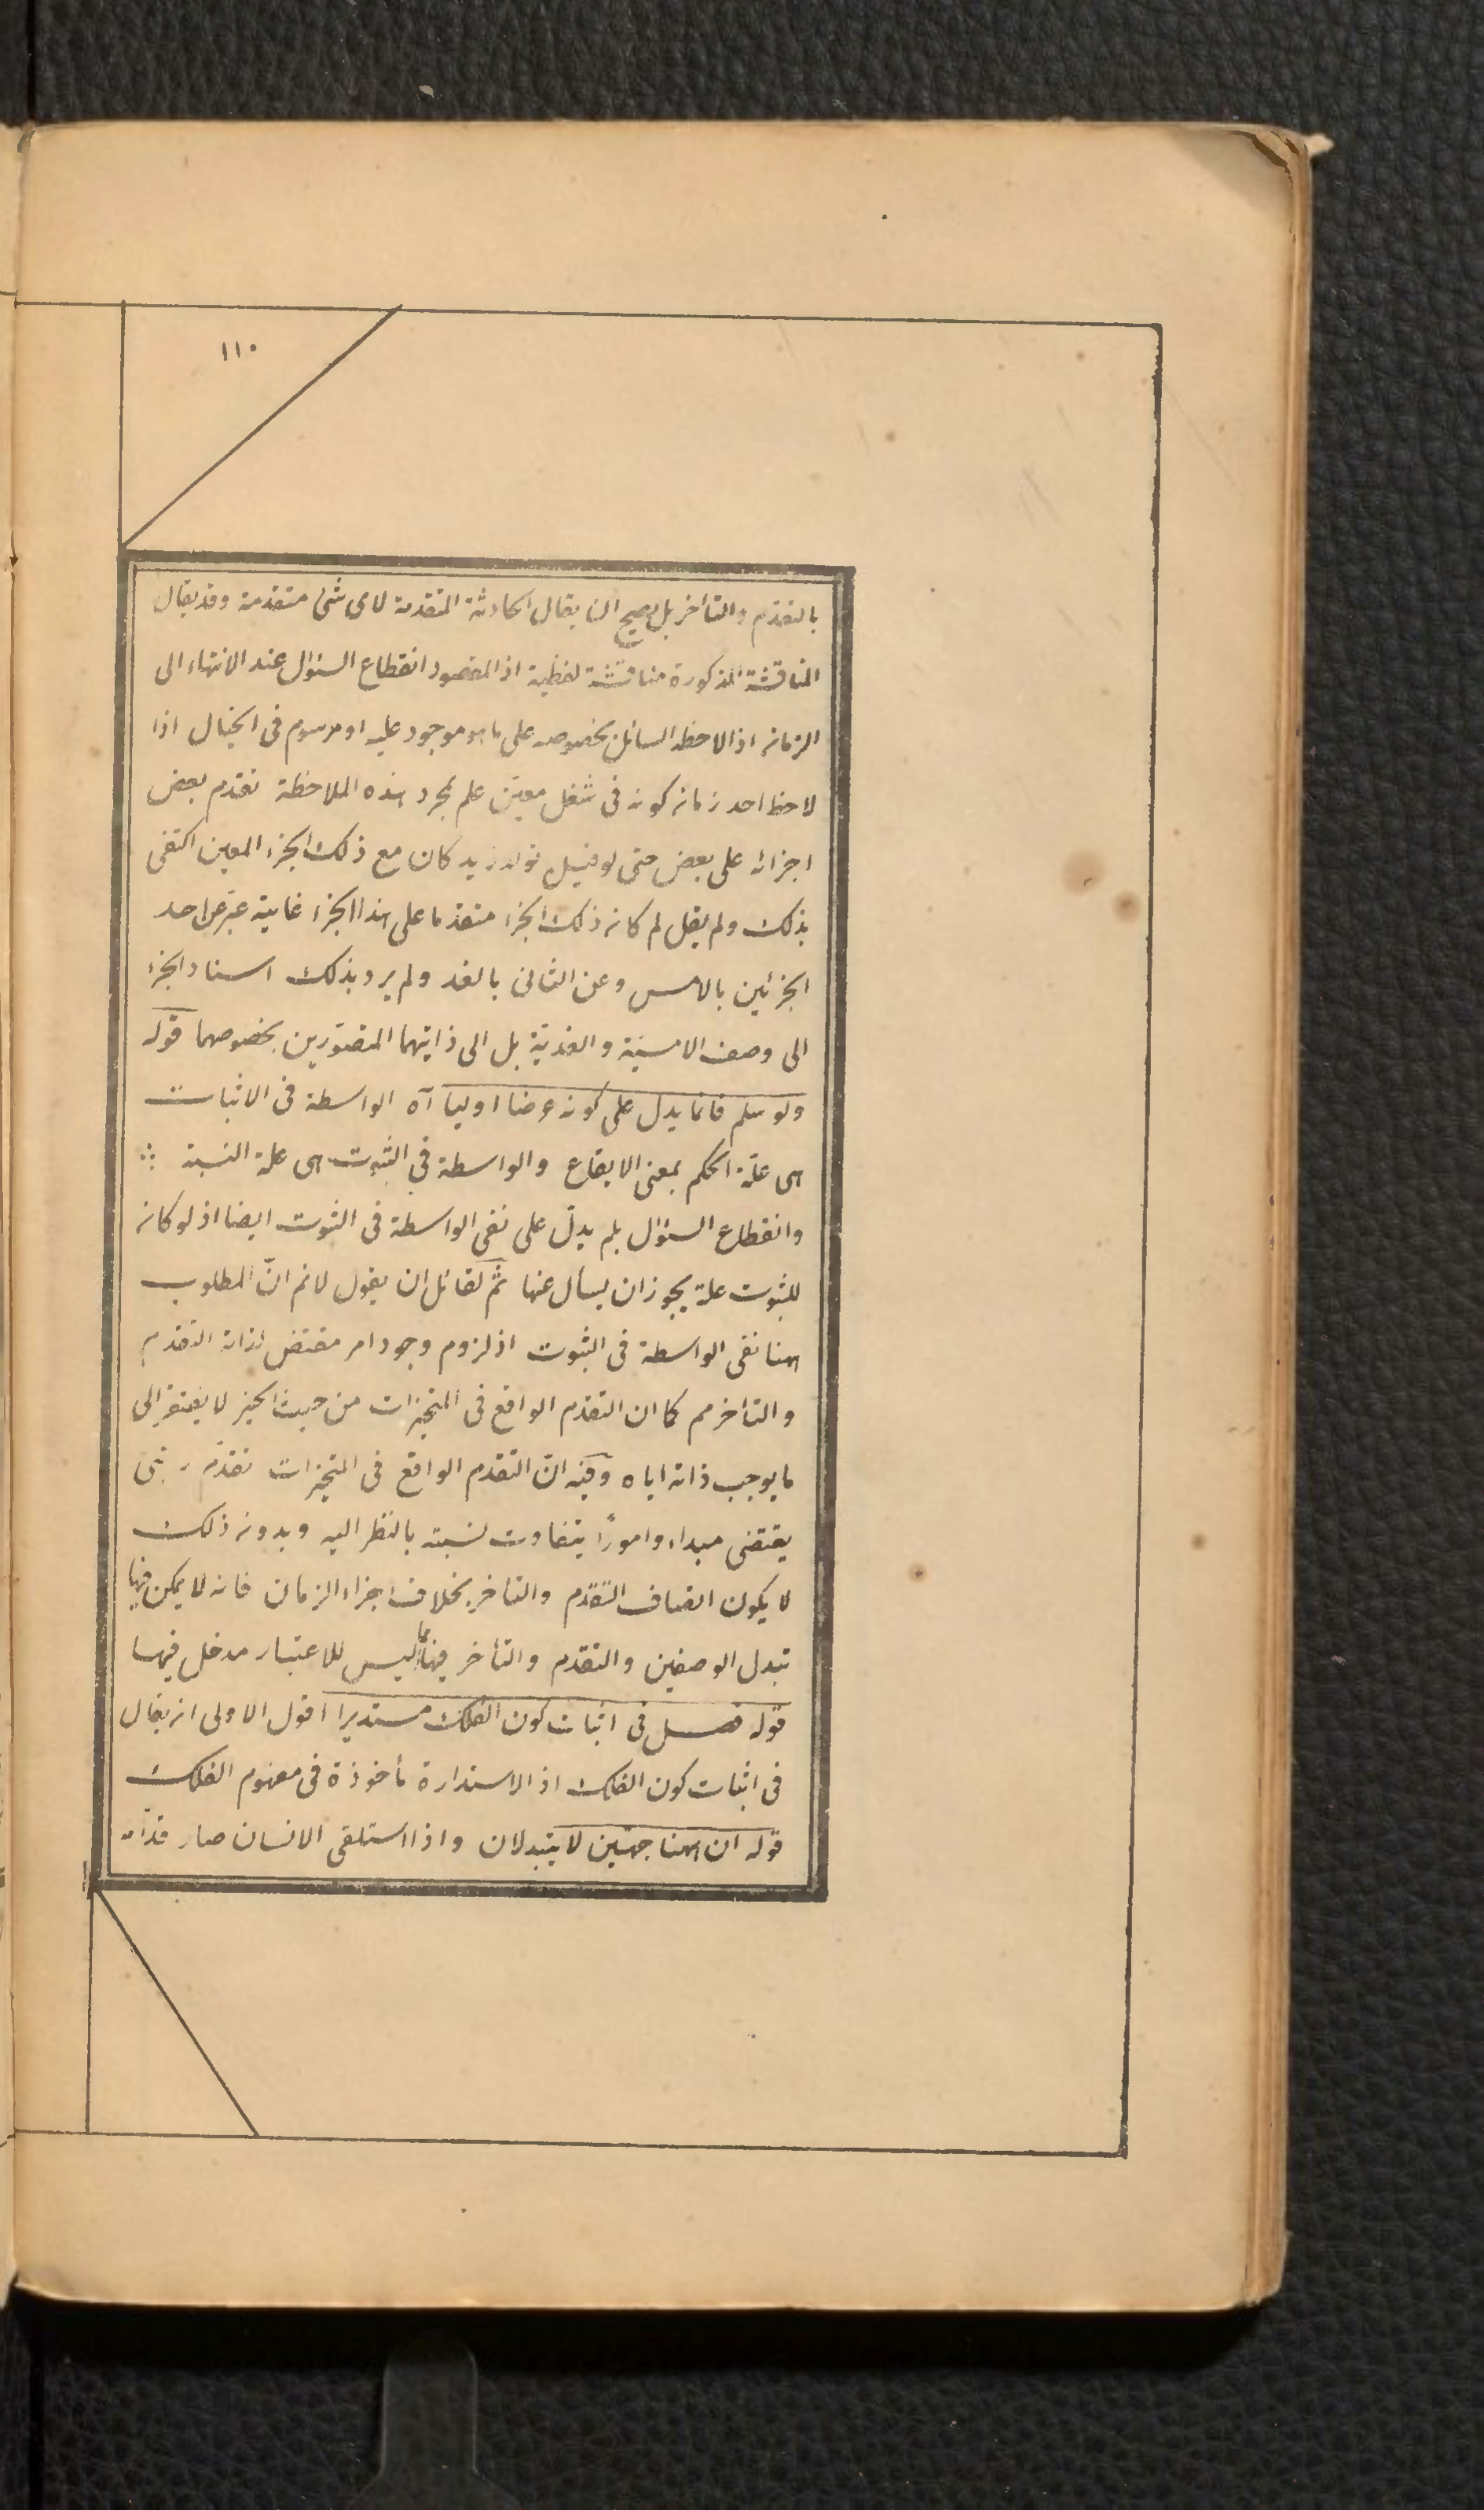 ١١٠
بالتقدّم والتأخر بل يصح ان يقال الحادثة المتقدمة لای شئ متقدمة وقد يقال
المناقشة المذكورة مناقشة لفظية اذ المقصود انقطاع السئوال عند الانتهاء الى
الزمان اذ الاحظ السائل بخصوصه على ما هو موجود عليه او مرسوم فى الخيال اذا
لاحظ احد زمان كونه فى شغل معيّن علم بمجرد هذه الملاحظة تقدّم بعض
اجزائه على بعض حتى لو قيل تولد زيد كان مع ذلك الجزء المعين اكتفى
بذلك ولم يقل لم كان ذلك الجزء متقدما على هذا الجزء غايته عبّر عن احد
الجزئين بالامس وعن الثانى بالغد ولم يرد بذلك اسناد الجزء
الى وصف الامسيّة والغديّة بل الى ذاتيهما المتصوّرين بخصوصهما قوله
ولو سلم فانما يدل على كونه عرضا اوليا آه الواسطة فى الاثبات
هى علّة الحكم بمعنى الايقاع والواسطة فى الثبوت هى علة النسبة
وانقطاع السئوال بلم يدلّ على نفى الواسطة فى الثبوت ايضا اذ لو كان
للثبوت علة يجوز ان يسأل عنها ثمّ لقائل ان يقول لانم انّ المطلوب
ههنا نفى الواسطة فى الثبوت اذ لزوم وجود امر مقتض لذاته التقدم
والتاخر مم كما ان التقدّم الواقع فى المتحيزات من حيث الحيز لا يفتقر الى
ما يوجب ذاته اياه وفيه انّ التقدّم الواقع فى المتحيزات تقدّم رتبى
يقتضى مبداء وامورًا يتفاوت نسبته بالنظر اليه وبدون ذلك
لا يكون اتصاف التقدّم والتاخر بخلاف اجزاء الزمان فانه لا يمكن فيها
تبدل الوصفين والتقدّم والتأخر فيها مما ليس للاعتبار مدخل فيهما
قوله فصل فى اثبات كون الفلك مستديرا اقول الاولى ان يقال
فى اثبات كون الفلك اذ الاستدارة مأخوذة فى مفهوم الفلك
قوله ان ههنا جهتين لا يتبدلان واذا استلقى الانسان صار قدّامه